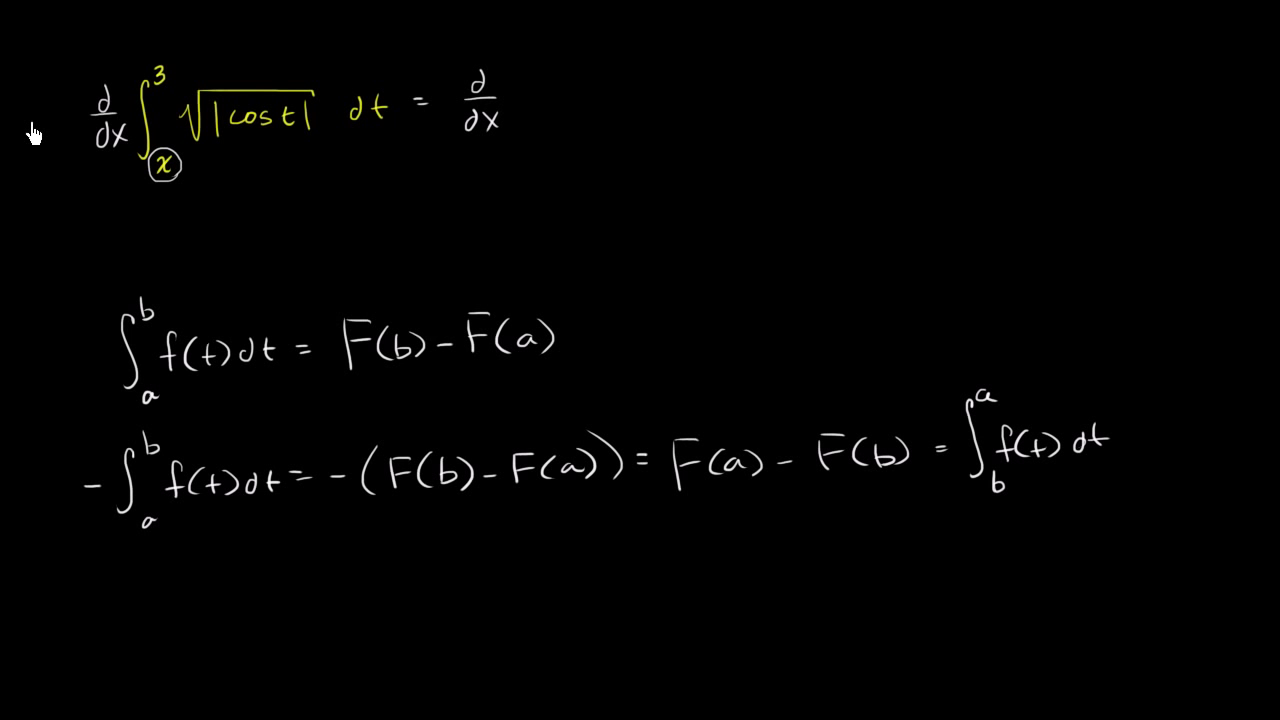 d/dx ∫_x^3 √|cos t| dt = d/dx
∫_a^b f(t)dt = F(b) - F(a)
-∫_a^b f(t)dt = -(F(b) - F(a)) = F(a) - F(b) = ∫_b^a f(t)dt